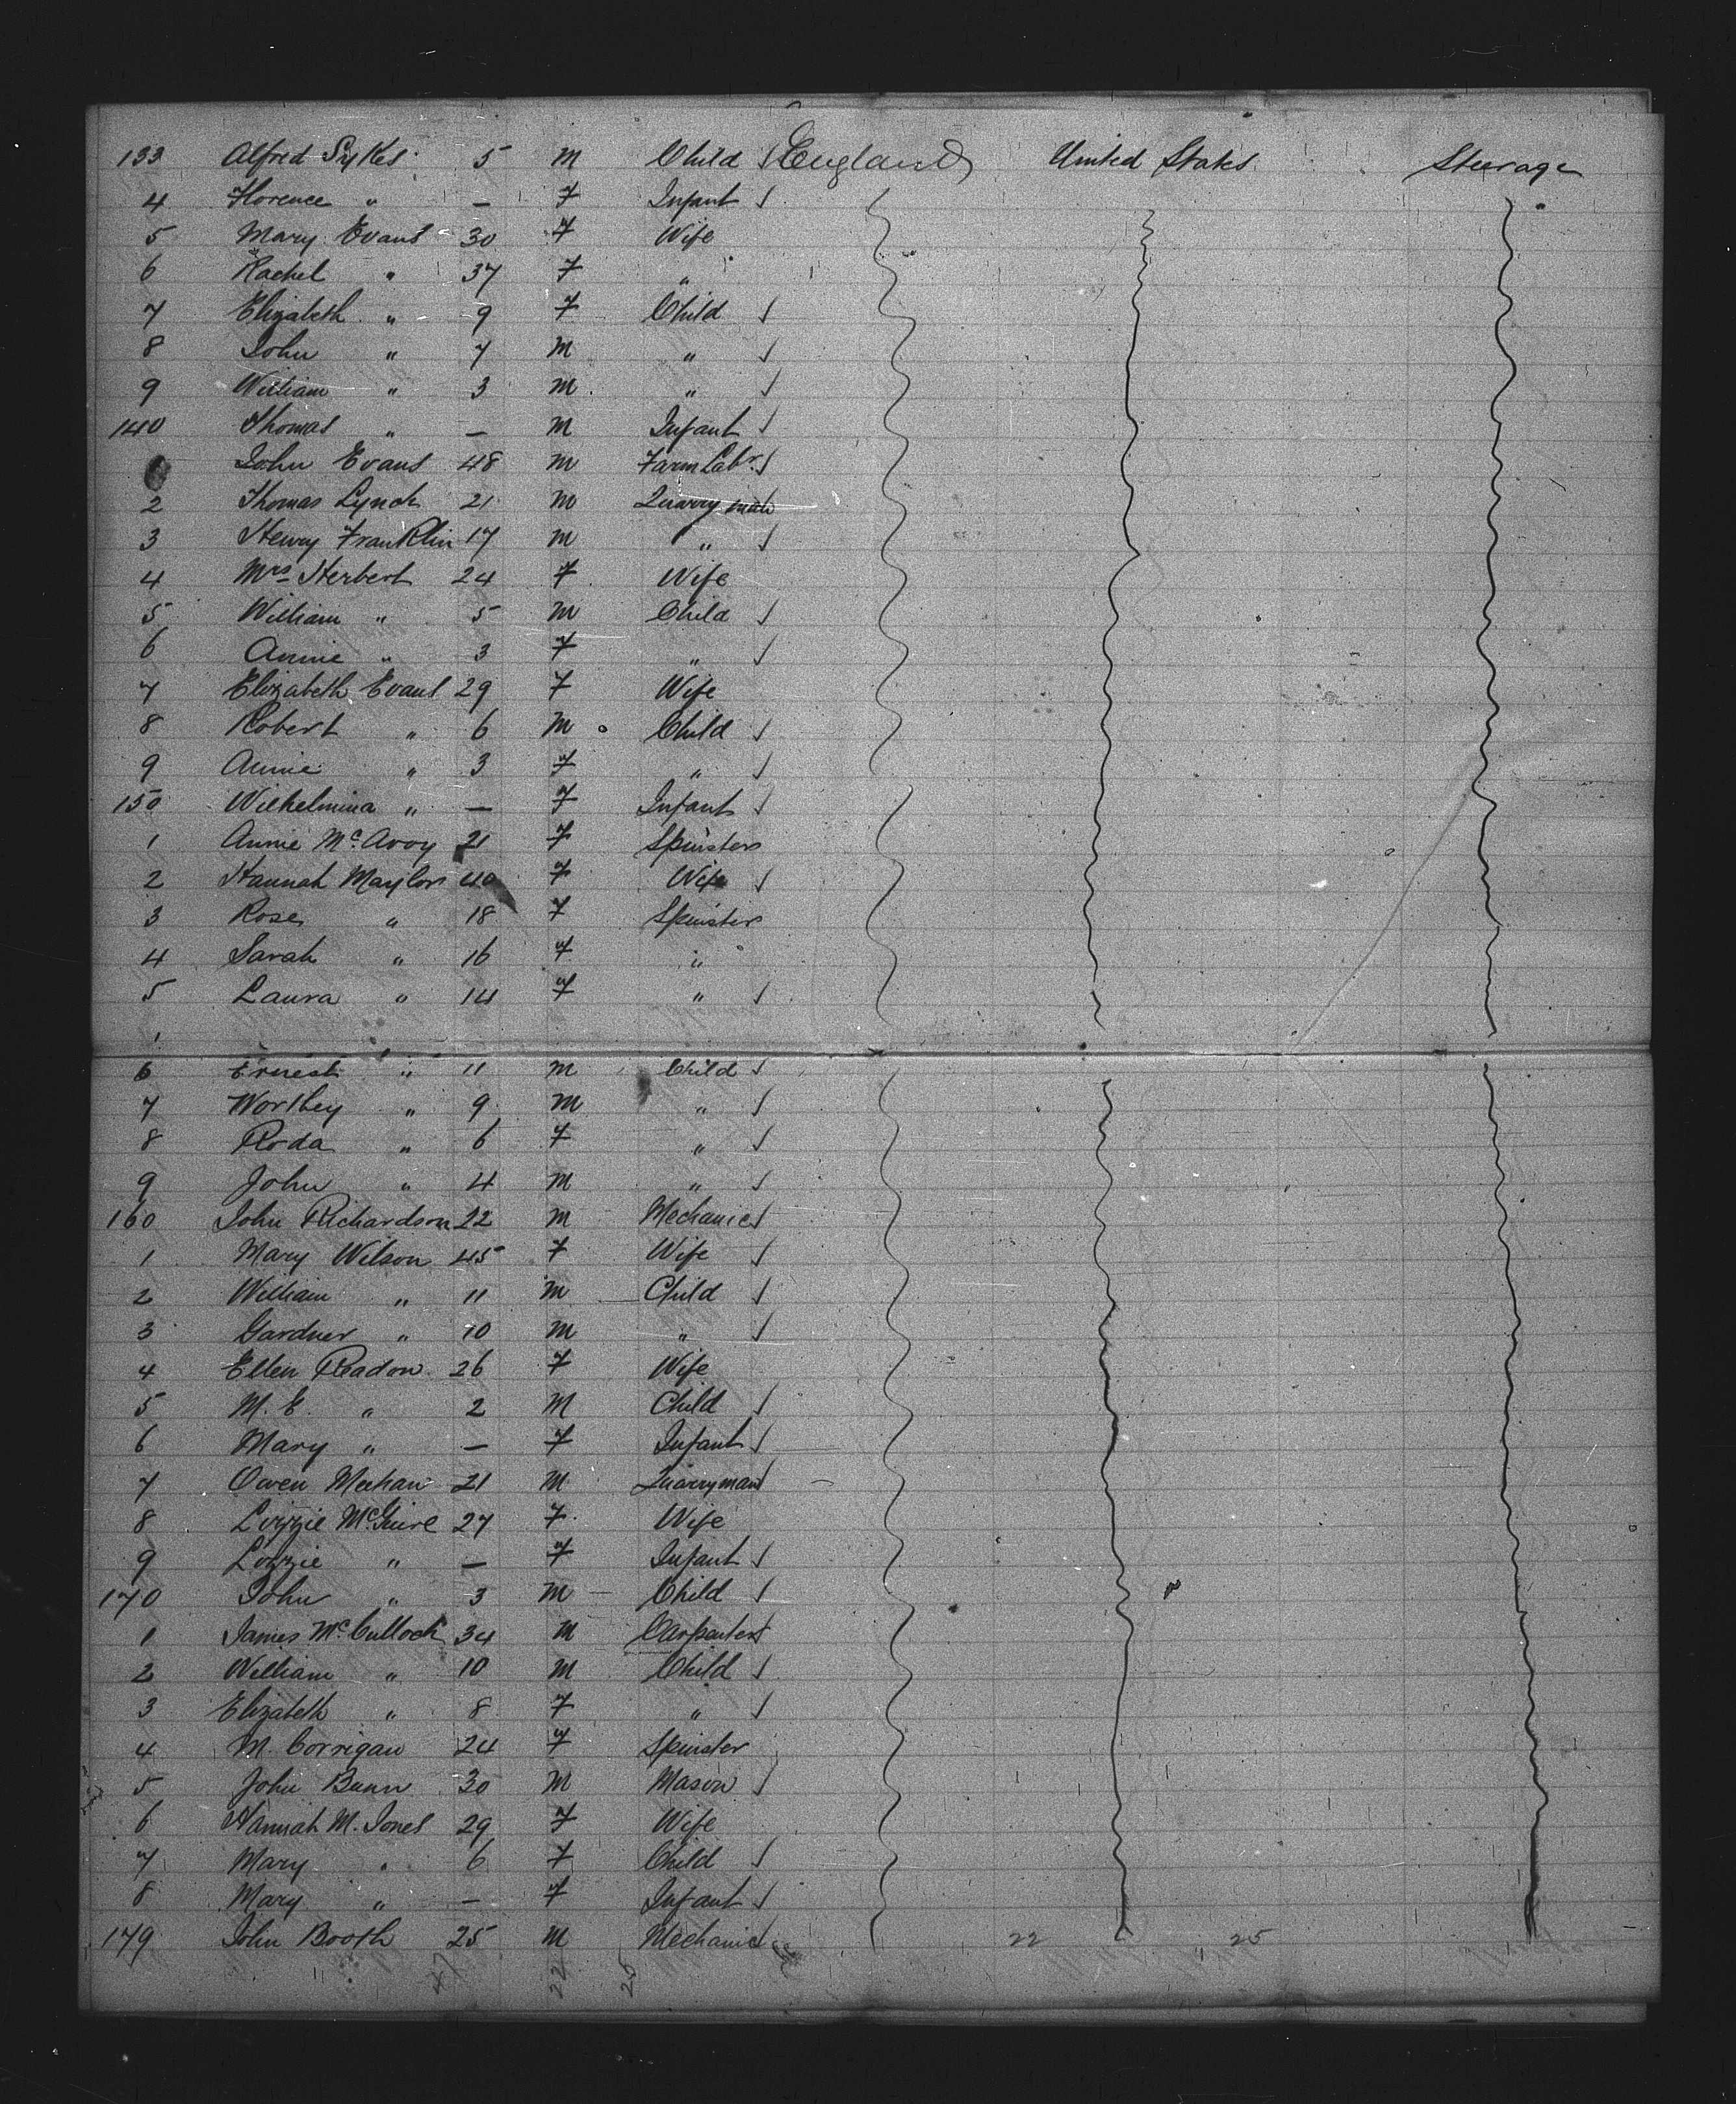 133 Alfred Sykes 5 M Child England United States Steerage
4 Florence " — F Infant
5 Mary Evans 30 F Wife
6 Rachel " 37 F "
7 Elizabeth " 9 F Child
8 John " 7 M "
9 William " 3 M "
140 Thomas " — M Infant
John Evans 48 M Farm Labr.
2 Thomas Lynch 21 M Quarryman
3 Henry Franklin 17 M "
4 Mrs Herbert 24 F Wife
5 William " 5 M Child
6 Annie " 3 F "
7 Elizabeth Evans 29 F Wife
8 Robert " 6 M Child
9 Annie " 3 F "
150 Wilhelmina " — F Infant
1 Annie McAvoy 21 F Spinster
2 Hannah Maylor 40 F Wife
3 Rose " 18 F Spinster
4 Sarah " 16 F "
5 Laura " 14 F "
6 Ernest " 11 M Child
7 Worthey " 9 M "
8 Roda " 6 F "
9 John " 4 M "
160 John Richardson 22 M Mechanic
1 Mary Wilson 45 F Wife
2 William " 11 M Child
3 Gardner " 10 M "
4 Ellen Readon 26 F Wife
5 M. E. " 2 M Child
6 Mary " — F Infant
7 Owen Meehan 21 M Quarryman
8 Lizzie McGuire 27 F Wife
9 Lizzie " — F Infant
170 John " 3 M Child
1 James McCulloch 34 M Carpenter
2 William " 10 M Child
3 Elizabeth " 8 F "
4 M. Corrigan 24 F Spinster
5 John Bunn 30 M Mason
6 Hannah M. Jones 29 F Wife
7 Mary " 6 F Child
8 Mary " — F Infant
179 John Booth 25 M Mechanic 22 25
47 22 25